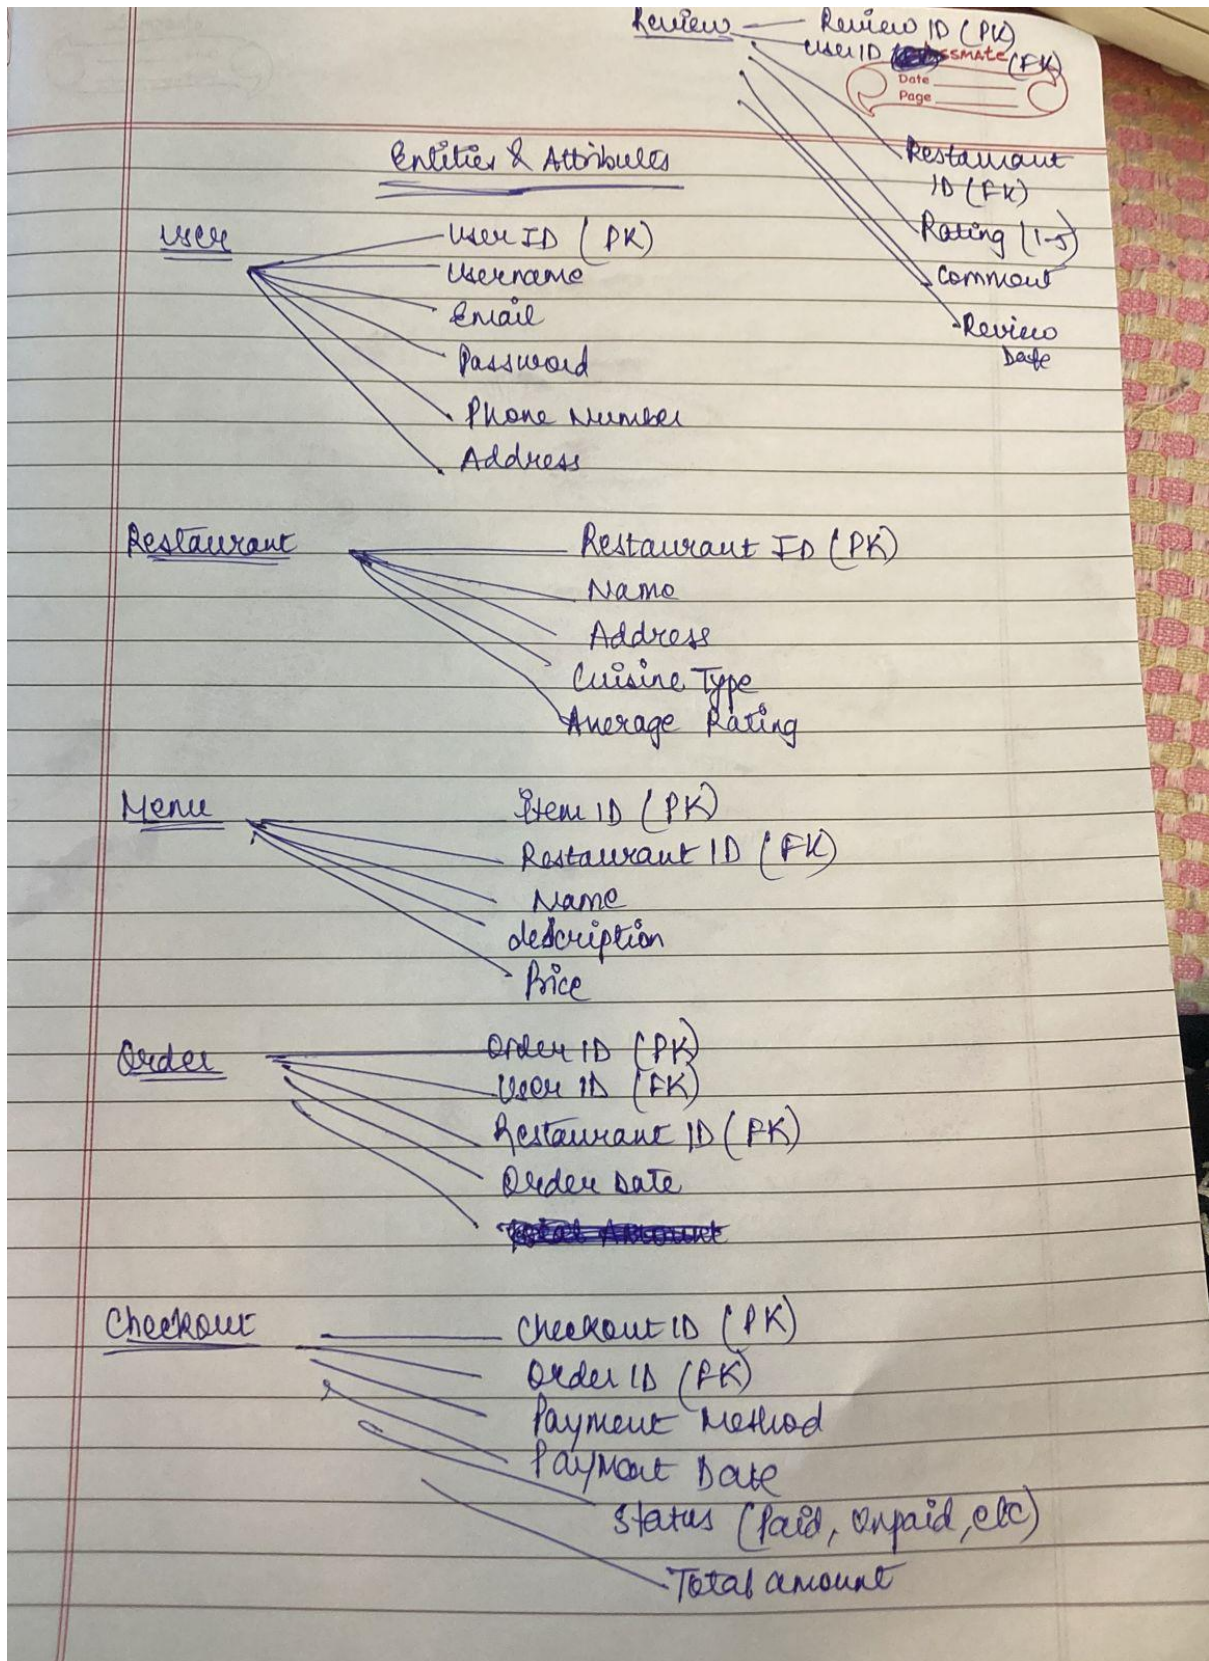 Review Review ID (PK)
User ID (FK)
SSMATE
Date
Page
Restaurant
ID (FK)
Rating (1-5)
Comment
Review
Date
Entities & Attributes
User User ID (PK)
Username
Email
Password
Phone Number
Address
Restaurant Restaurant ID (PK)
Name
Address
Cuisine Type
Average Rating
Menu Item ID (PK)
Restaurant ID (FK)
Name
description
Price
Order Order ID (PK)
User ID (FK)
Restaurant ID (FK)
Order Date
Total Amount
Checkout Checkout ID (PK)
Order ID (FK)
Payment Method
Payment Date
Status (Paid, Unpaid, etc)
Total amount